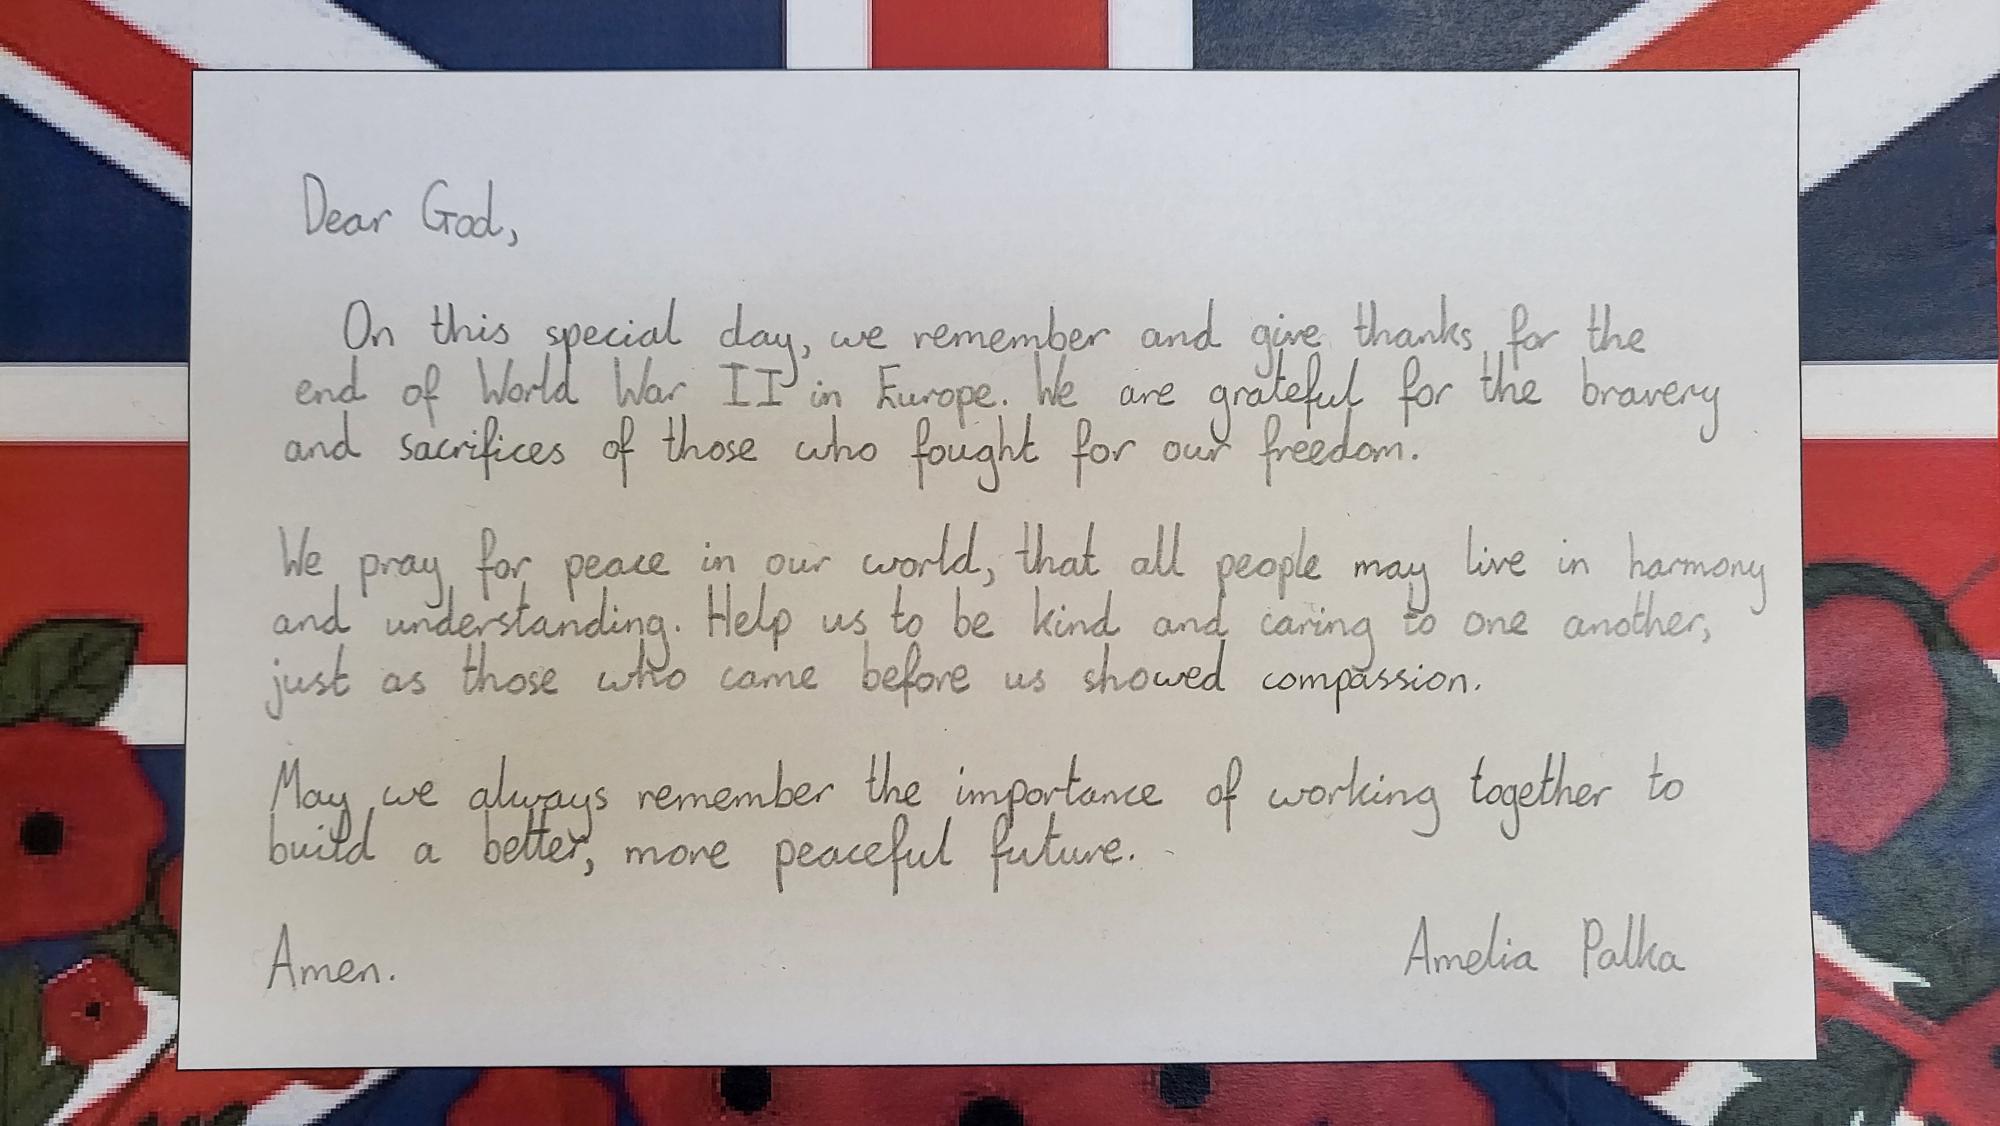 Dear God,
On this special day, we remember and give thanks for the
end of World War II in Europe. We are grateful for the bravery
and sacrifices of those who fought for our freedom.
We pray for peace in our world, that all people may live in harmony
and understanding. Help us to be kind and caring to one another,
just as those who came before us showed compassion.
May we always remember the importance of working together to
build a better, more peaceful future.
Amen. Amelia Palka